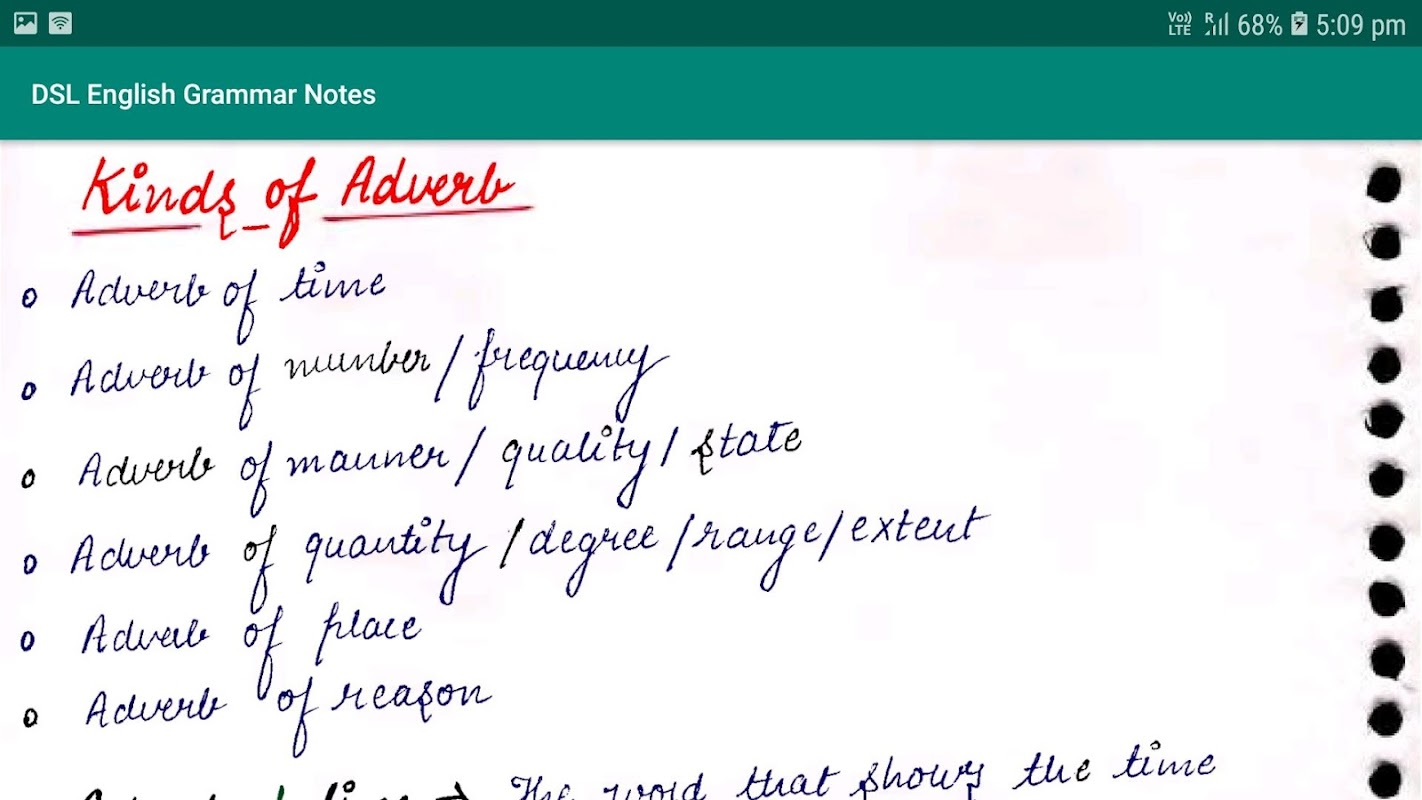 Vo)) LTE R 68% 5:09 pm
DSL English Grammar Notes
Kinds of Adverb
Adverb of time
Adverb of number/frequency
Adverb of manner/quality/state
Adverb of quantity/degree/range/extent
Adverb of place
Adverb of reason
The word that shows the time